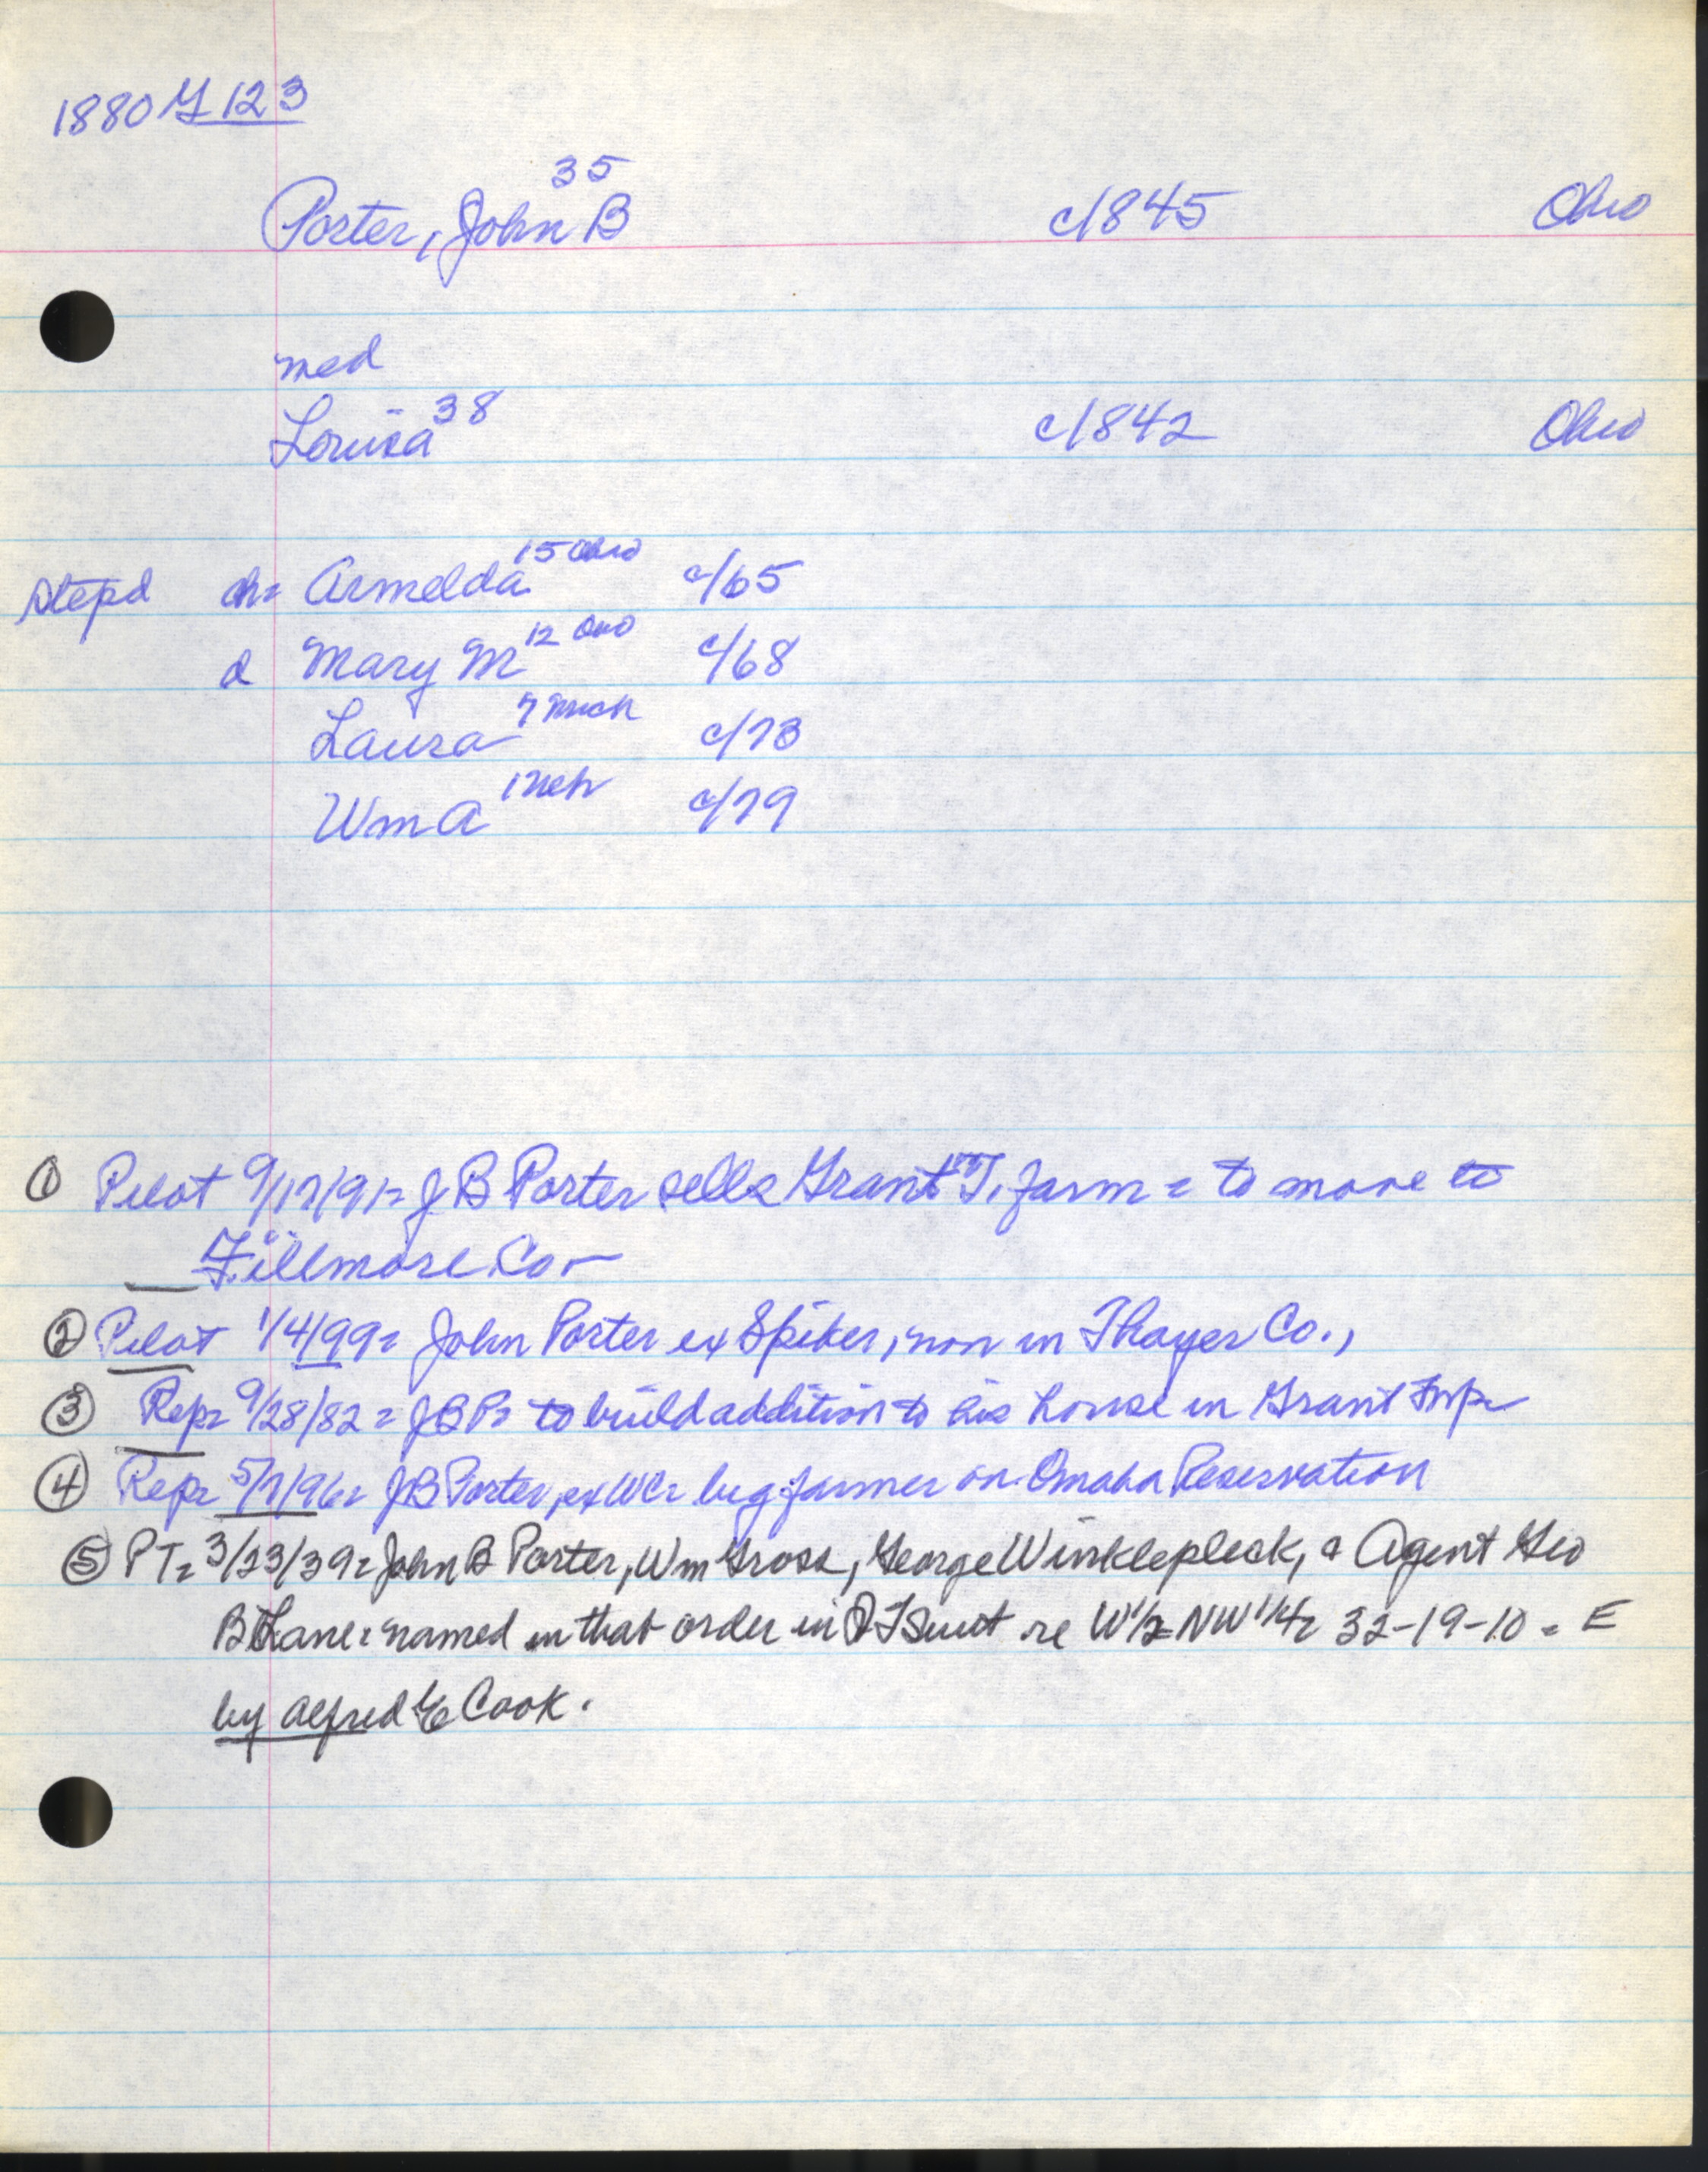 1880 G 123
35
Porter, John B c/1845 Ohio
med
Louisa 38 c/1842 Ohio
stepd ch= Armelda 15 Ohio c/65
d Mary M 12 Ohio c/68
Laura 7 Mich c/73
Wm A 1 Neb c/79
① Pilot 9/17/91= J B Porter sells Grant T. farm = to move to
Fillmore Co-
② Pilot 1/4/99= John Porter ex Spiker, now in Thayer Co.,
③ Rep= 9/28/82= JBP= to build addition to his house in Grant Twp-
④ Rep= 5/7/96= JB Porter, ex WC= big farmer on Omaha Reservation
⑤ PT= 3/23/39= John B Porter, Wm Gross, George Winklepleck, & Agent Geo
B Lane= named in that order in QT Suit re W 1/2 NW 1/4= 32-19-10 = E
by Alfred Cook.